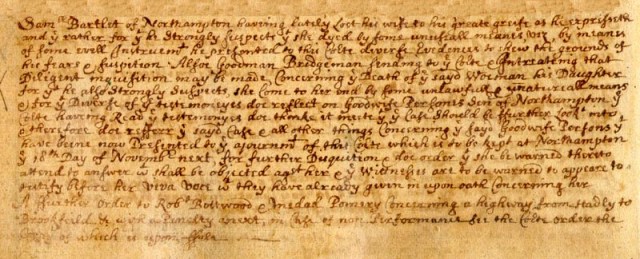 Samll Bartlet of Northampton having lately Lost his wife to his greate greife as he expresseth
and yt rather for yt he strongly suspects yt she dyed by some unusuall meanes, viz, by meanes
of some evill Instrument he presented to this Corte diverse Evidences to shew the grounds of
his feares & suspition Alsoe Goodman Bridgeman sending to ye Corte & Intreating that
Diligent inquisition may be made Concerning ye Death of ye sayd Woeman his Daughter
for yt he also strongly suspects she come to her end by some unlawfull & unaturall meanes
& for yt Diverse of ye testemonyes doe reflect on Goodwife Persons Sen of Northampton ye
Corte having Read ye testemonyes doe thinke it meete yt ye Case should be ffurther Lookt into
& therefore doe refferr ye sayd Case & all other things Concerning ye sayd Goodwife Persons yt
have beene now Presented to ye ajournmt of this Corte which is to be kept at Northampton
ye 18th Day of Novembr next for further Disquition & doe order yt she be warned thereto
attend to answer wt shall be objected agst her & ye Witnesses are to be warned to appeare to
testify before her viva voce wt they have already given in upon oath Concerning her
A ffurther order to Robt Boltwood & Medad Pomery Concerning a highway from Hadly to
Brookfeild & in Case of non Performance see the Corte order the
of which is upon ffile